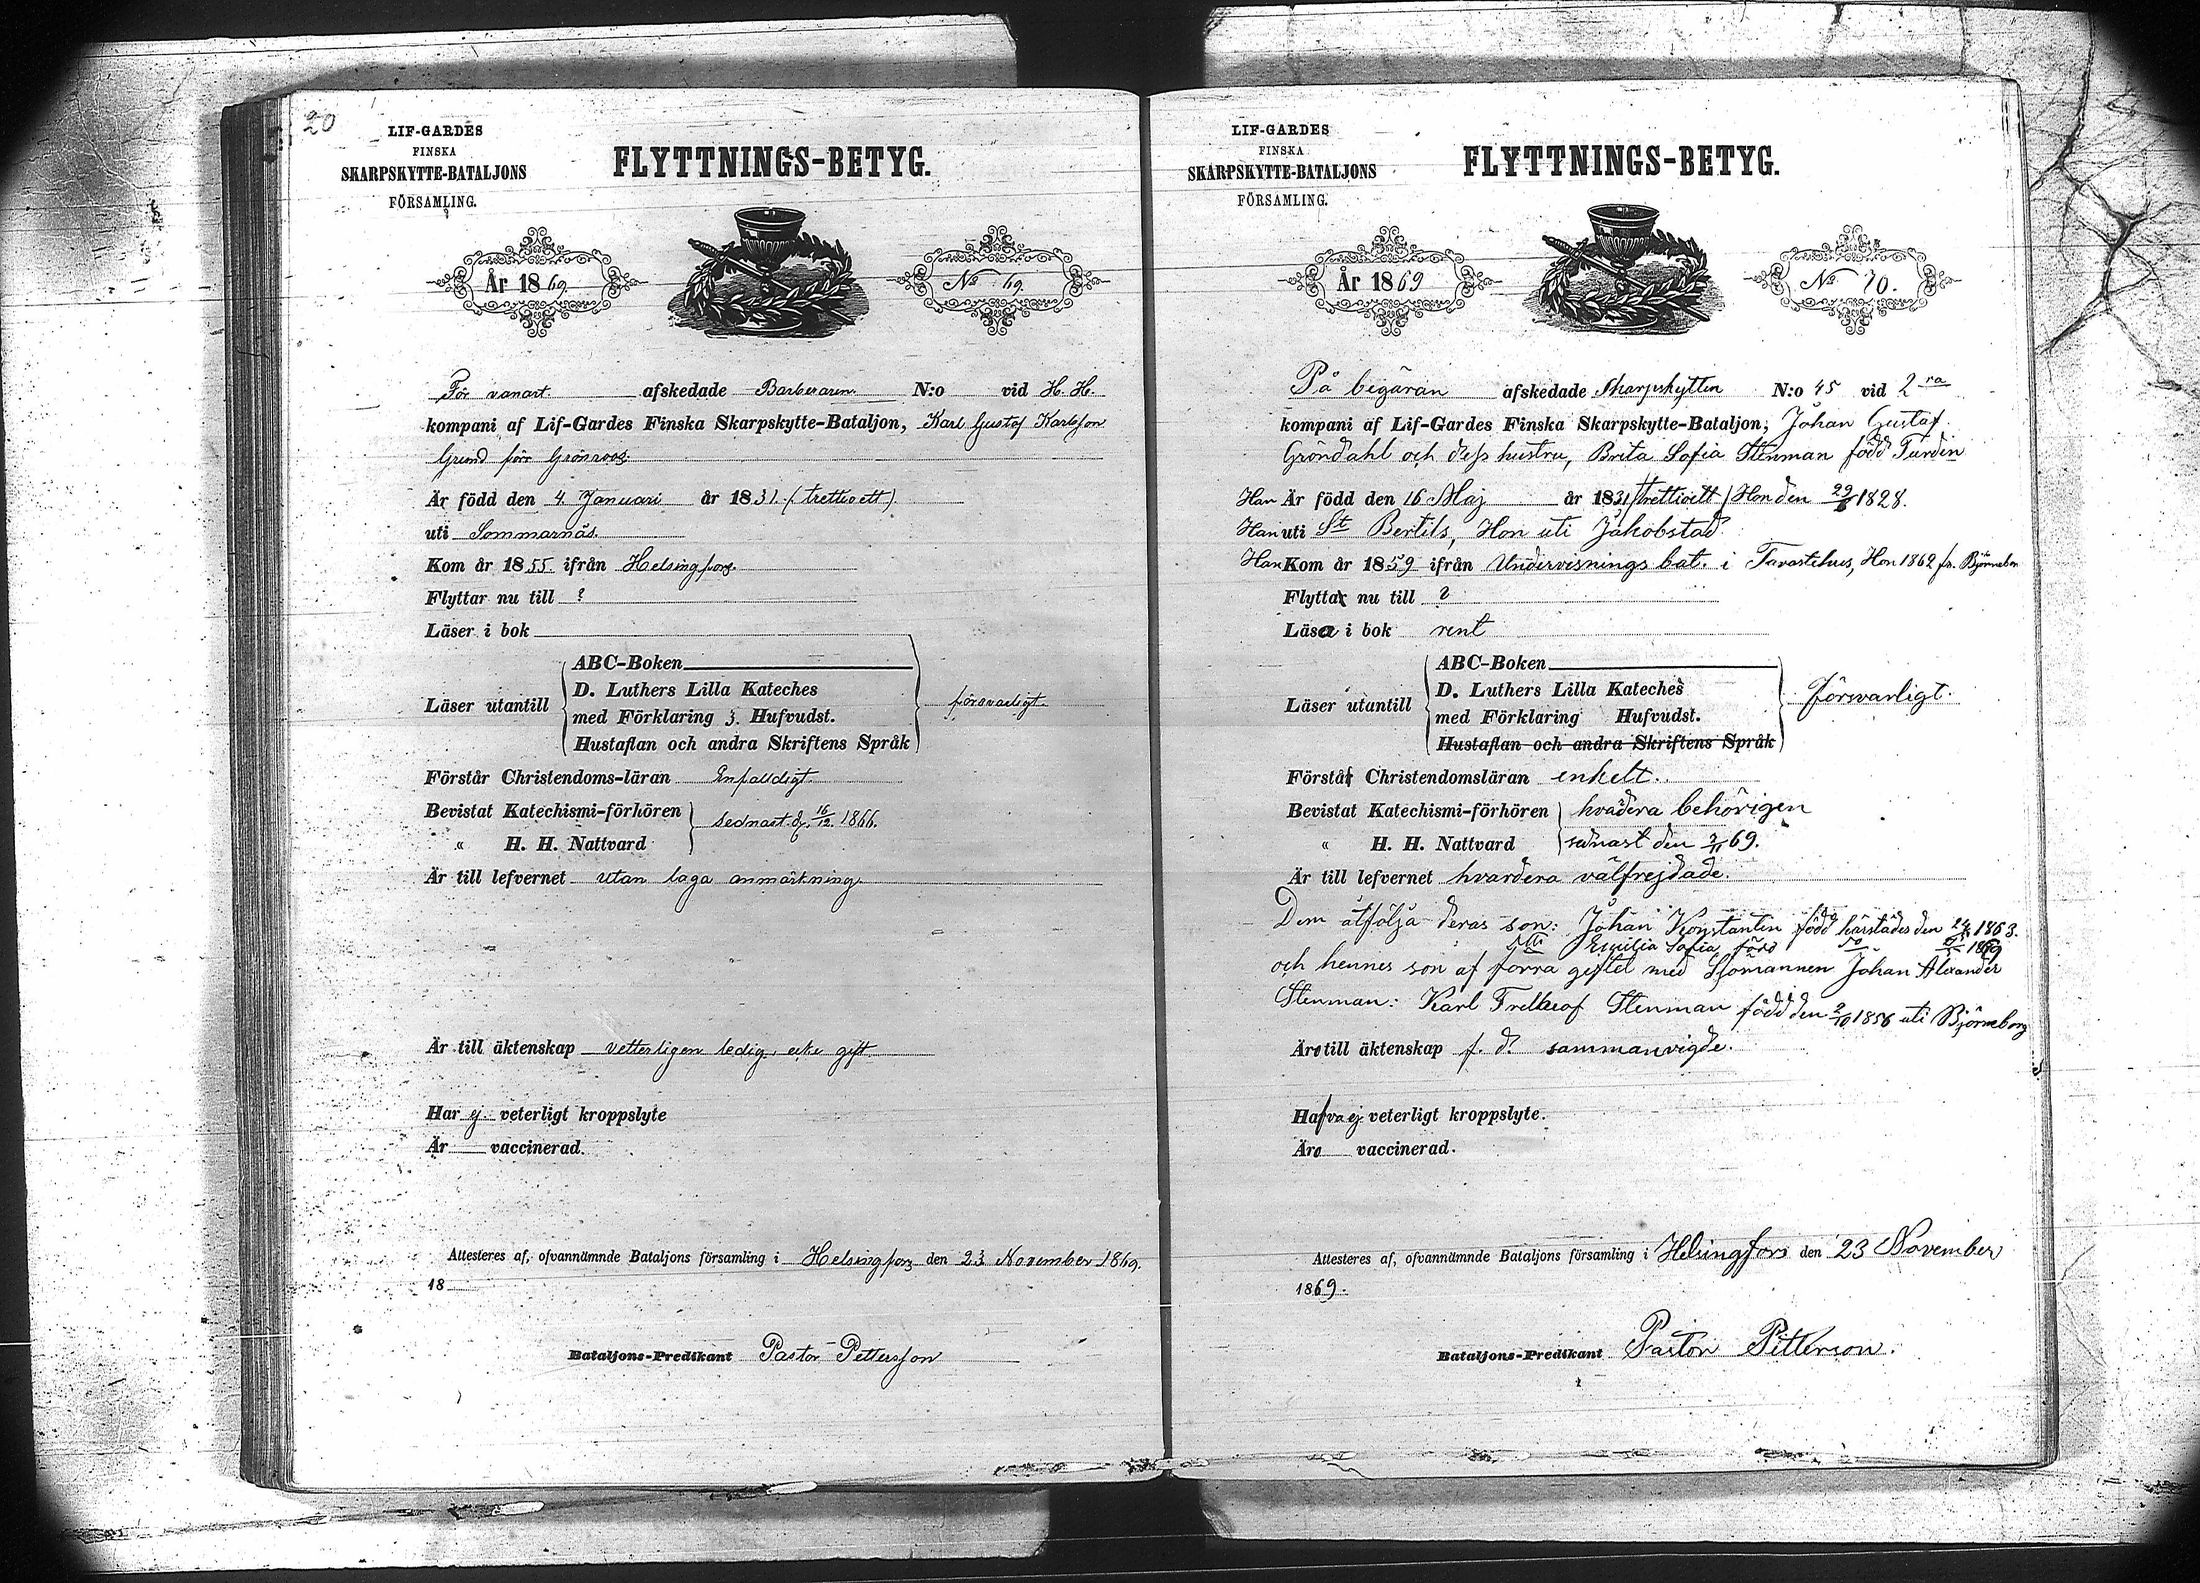 20
LIF-GARDES
FINSKA
SKARPSKYTTE-BATALJONS
FÖRSAMLING.
FLYTTNINGS-BETYG.
År 1869.
No 69.
För vanart. afskedade Barberaren N:o vid H. H.
kompani af Lif-Gardes Finska Skarpskytte-Bataljon, Karl Gustaf Karlsson
Grund förr Grönroos.
Är född den 4. Januari år 1831. (trettioett).
uti Sommarnäs.
Kom år 1855 ifrån Helsingfors.
Flyttar nu till ?
Läser i bok
ABC-Boken
D. Luthers Lilla Kateches
Läser utantill försvarligt.
med Förklaring 3. Hufvudst.
Hustaflan och andra Skriftens Språk
Förstår Christendoms-läran Enfaldigt.
Bevistat Katechismi-förhören
sednast d. 16/12. 1866.
" H. H. Nattvard
Är till lefvernet utan laga anmärkning.
Är till äktenskap vetterligen ledig, icke gift
Har ej veterligt kroppslyte
Är vaccinerad.
Attesteres af, ofvannämnde Bataljons församling i Helsingfors den 23 November 1869.
18
Bataljons-Predikant Pastor Pettersson
LIF-GARDES
FINSKA
SKARPSKYTTE-BATALJONS
FÖRSAMLING.
FLYTTNINGS-BETYG.
År 1869
No 70.
På begäran afskedade Skarpskytten N:o 45 vid 2ra
kompani af Lif-Gardes Finska Skarpskytte-Bataljon, Johan Gustaf
Gröndahl och dess hustru, Brita Sofia Stenman född Turdin
Han Är född den 16 Maj år 1831 (trettioett) Hon den 1828.
Han uti St Bertils, Hon uti Jakobstad.
Han Kom år 1859 ifrån Undervisnings bat. i Tavastehus, Hon 1862 fr. Björneborg
Flytta nu till ?
Läsa i bok rent
ABC-Boken
D. Luthers Lilla Kateches
Läser utantill försvarligt.
med Förklaring Hufvudst.
Hustaflan och andra Skriftens Språk
Förstå Christendomsläran enkelt.
Bevistat Katechismi-förhören hvardera behörigen
" H. H. Nattvard sednast den 2/11 69.
Är till lefvernet hvardera välfrejdade.
Dem åtfölja deras son: Johan Konstantin född härstädes den 1863.
Emilia Sofia född 1869
och hennes son af förra giftet med Sjömannen Johan Alexander
Stenman: Karl Fretheof Stenman född den 2/10 1856 uti Björneborg
Äro till äktenskap f. d. sammanvigde.
Hafva ej veterligt kroppslyte.
Äro vaccinerad.
Attesteres af, ofvannämnde Bataljons församling i Helsingfors den 23 November
1869.
Bataljons-Predikant Pastor Petterson.